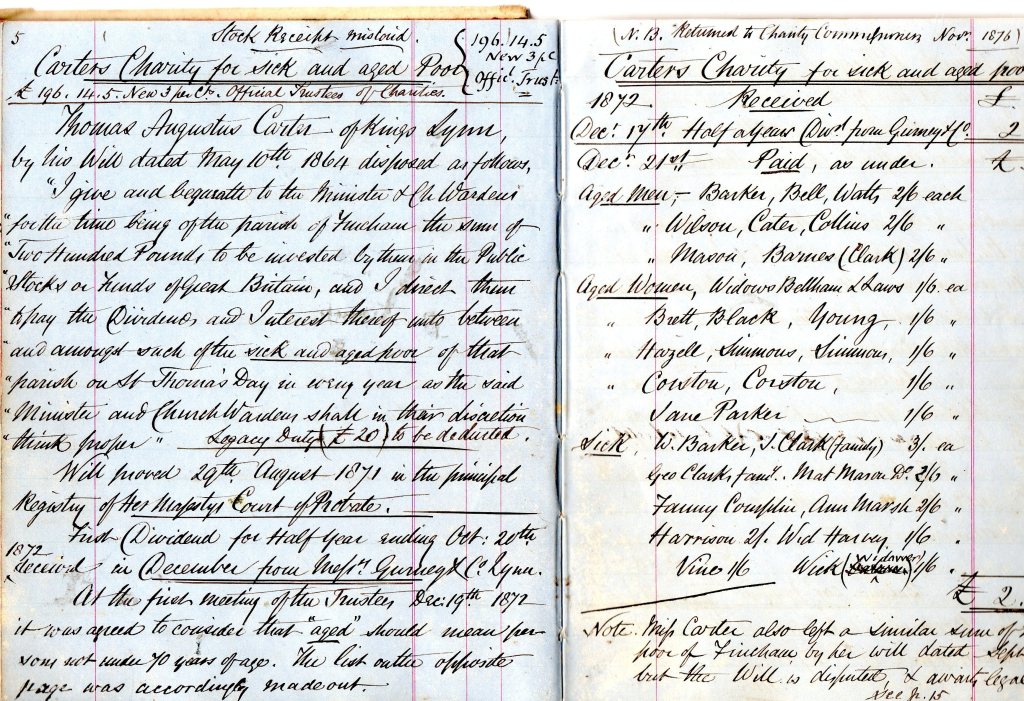 5
Stock Receipt mislaid.
196.14.5
New 3 p C
Offic. Trust.
Carters Charity for sick and aged Poor
£ 196. 14. 5. New 3 per Cts. Official Trustees of Charities.
Thomas Augustus Carter of Kings Lynn,
by his Will dated May 10th 1864 disposed as follows,
"I give and bequeathe to the Minister & Ch. Wardens
"for the time being of the parish of Fincham the sum of
"Two Hundred Pounds to be invested by them in the Public
"Stocks or Funds of Great Britain, and I direct them
"to pay the Dividends and Interest thereof unto between
"and amongst such of the sick and aged poor of that
"parish on St Thomas's Day in every year as the said
"Minister and Church Wardens shall in their discretion
"think proper" Legacy Duty (£ 20) to be deducted.
Will proved 29th August 1871 in the principal
Registry of Her Majestys Court of Probate.
First Dividend for Half Year ending Oct: 20th
1872
received in December from Messrs. Gurney & Co. Lynn.
At the first meeting of the Trustees Dec. 19th 1872
it was agreed to consider that "aged" should mean per-
sons not under 70 years of age. The list on the opposite
page was accordingly made out.
(N.B. Returned to Charity Commissioners Novr. 1876)
Carters Charity for sick and aged poor
1872 Received £
Decr. 17th Half a Years Divd. from Gurney & Co. 2
Decr. 21st Paid, as under. £
Aged Men,- Barker, Bell, Watts 2/6 each
" Wilson, Cater, Collins 2/6 "
" Mason, Barnes (Clark) 2/6 "
Aged Women, Widows Bellham & Laws 1/6 ea
" Brett, Black, Young, 1/6 "
" Hazell, Simmons, Simmons, 1/6 "
" Corston, Corston, 1/6 "
Jane Parker 1/6 "
Sick, W. Barker, J. Clark (family) 3/. ea
Geo Clarks famy. Mat Mason Do. 2/6 "
Fanny Ann Marsh 2/6 "
Harrison 2/. Wid Harvey 1/6 "
Vine 1/6 Wick (widower) 1/6 "
£ 2.
Note. Miss Carter also left a similar sum of
poor of Fincham, by her will dated Sept
but the Will is disputed, & awaits legal
See p. 15